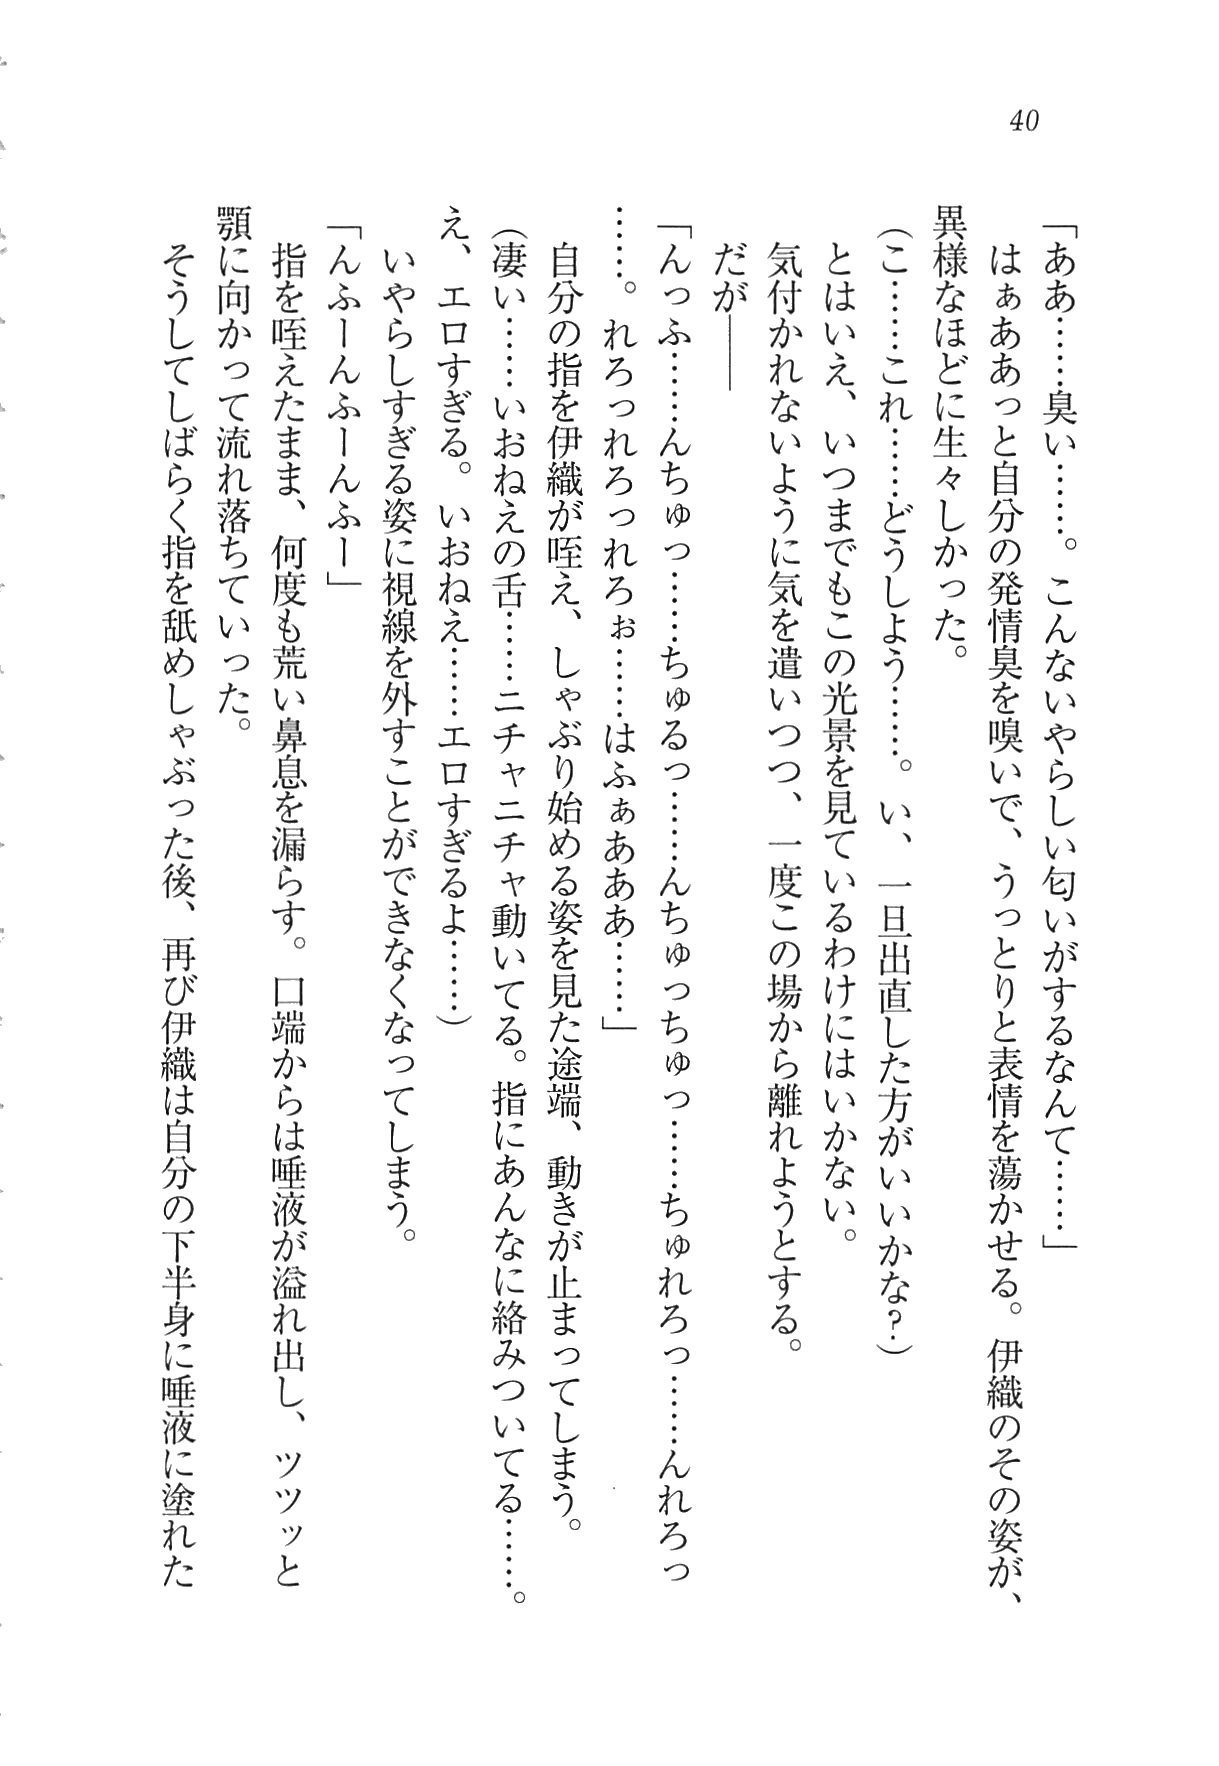 40
「ああ……臭い……。こんないやらしい匂いがするなんて……」
はぁああっと自分の発情臭を嗅いで、うっとりと表情を蕩かせる。伊織のその姿が、
異様なほどに生々しかった。
(こ……これ……どうしよう……。い、一旦出直した方がいいかな？)
とはいえ、いつまでもこの光景を見ているわけにはいかない。
気付かれないように気を遣いつつ、一度この場から離れようとする。
だが――
「んっふ……んちゅっ……ちゅるっ……んちゅっちゅっ……ちゅれろっ……んれろっ
……。れろっれろっれろぉ……はふぁあああ……」
自分の指を伊織が咥え、しゃぶり始める姿を見た途端、動きが止まってしまう。
(凄い……いおねえの舌……ニチャニチャ動いてる。指にあんなに絡みついてる……。
え、エロすぎる。いおねえ……エロすぎるよ……)
いやらしすぎる姿に視線を外すことができなくなってしまう。
「んふーんふーんふー」
指を咥えたまま、何度も荒い鼻息を漏らす。口端からは唾液が溢れ出し、ツツッと
顎に向かって流れ落ちていった。
そうしてしばらく指を舐めしゃぶった後、再び伊織は自分の下半身に唾液に塗れた